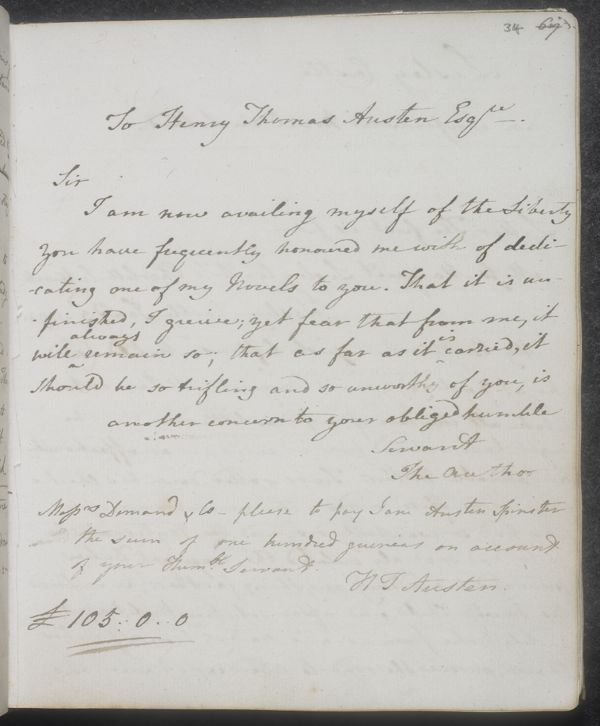 34 67
To Henry Thomas Austen Esqre.
Sir
I am now availing myself of the Liberty
you have frequently honoured me with of dedi-
-cating one of my Novels to you. That it is un-
-finished, I greive; yet fear that from me, it
always
will remain so; that as far as it is carried, it
should be so trifling and so unworthy of you, is
another concern to your obliged humble
Servant
The Author
Messrs Demand & Co- please to pay Jane Austen Spinster
the sum of one hundred guineas on account
of your Humble Servant.
H T Austen.
£105. 0. 0